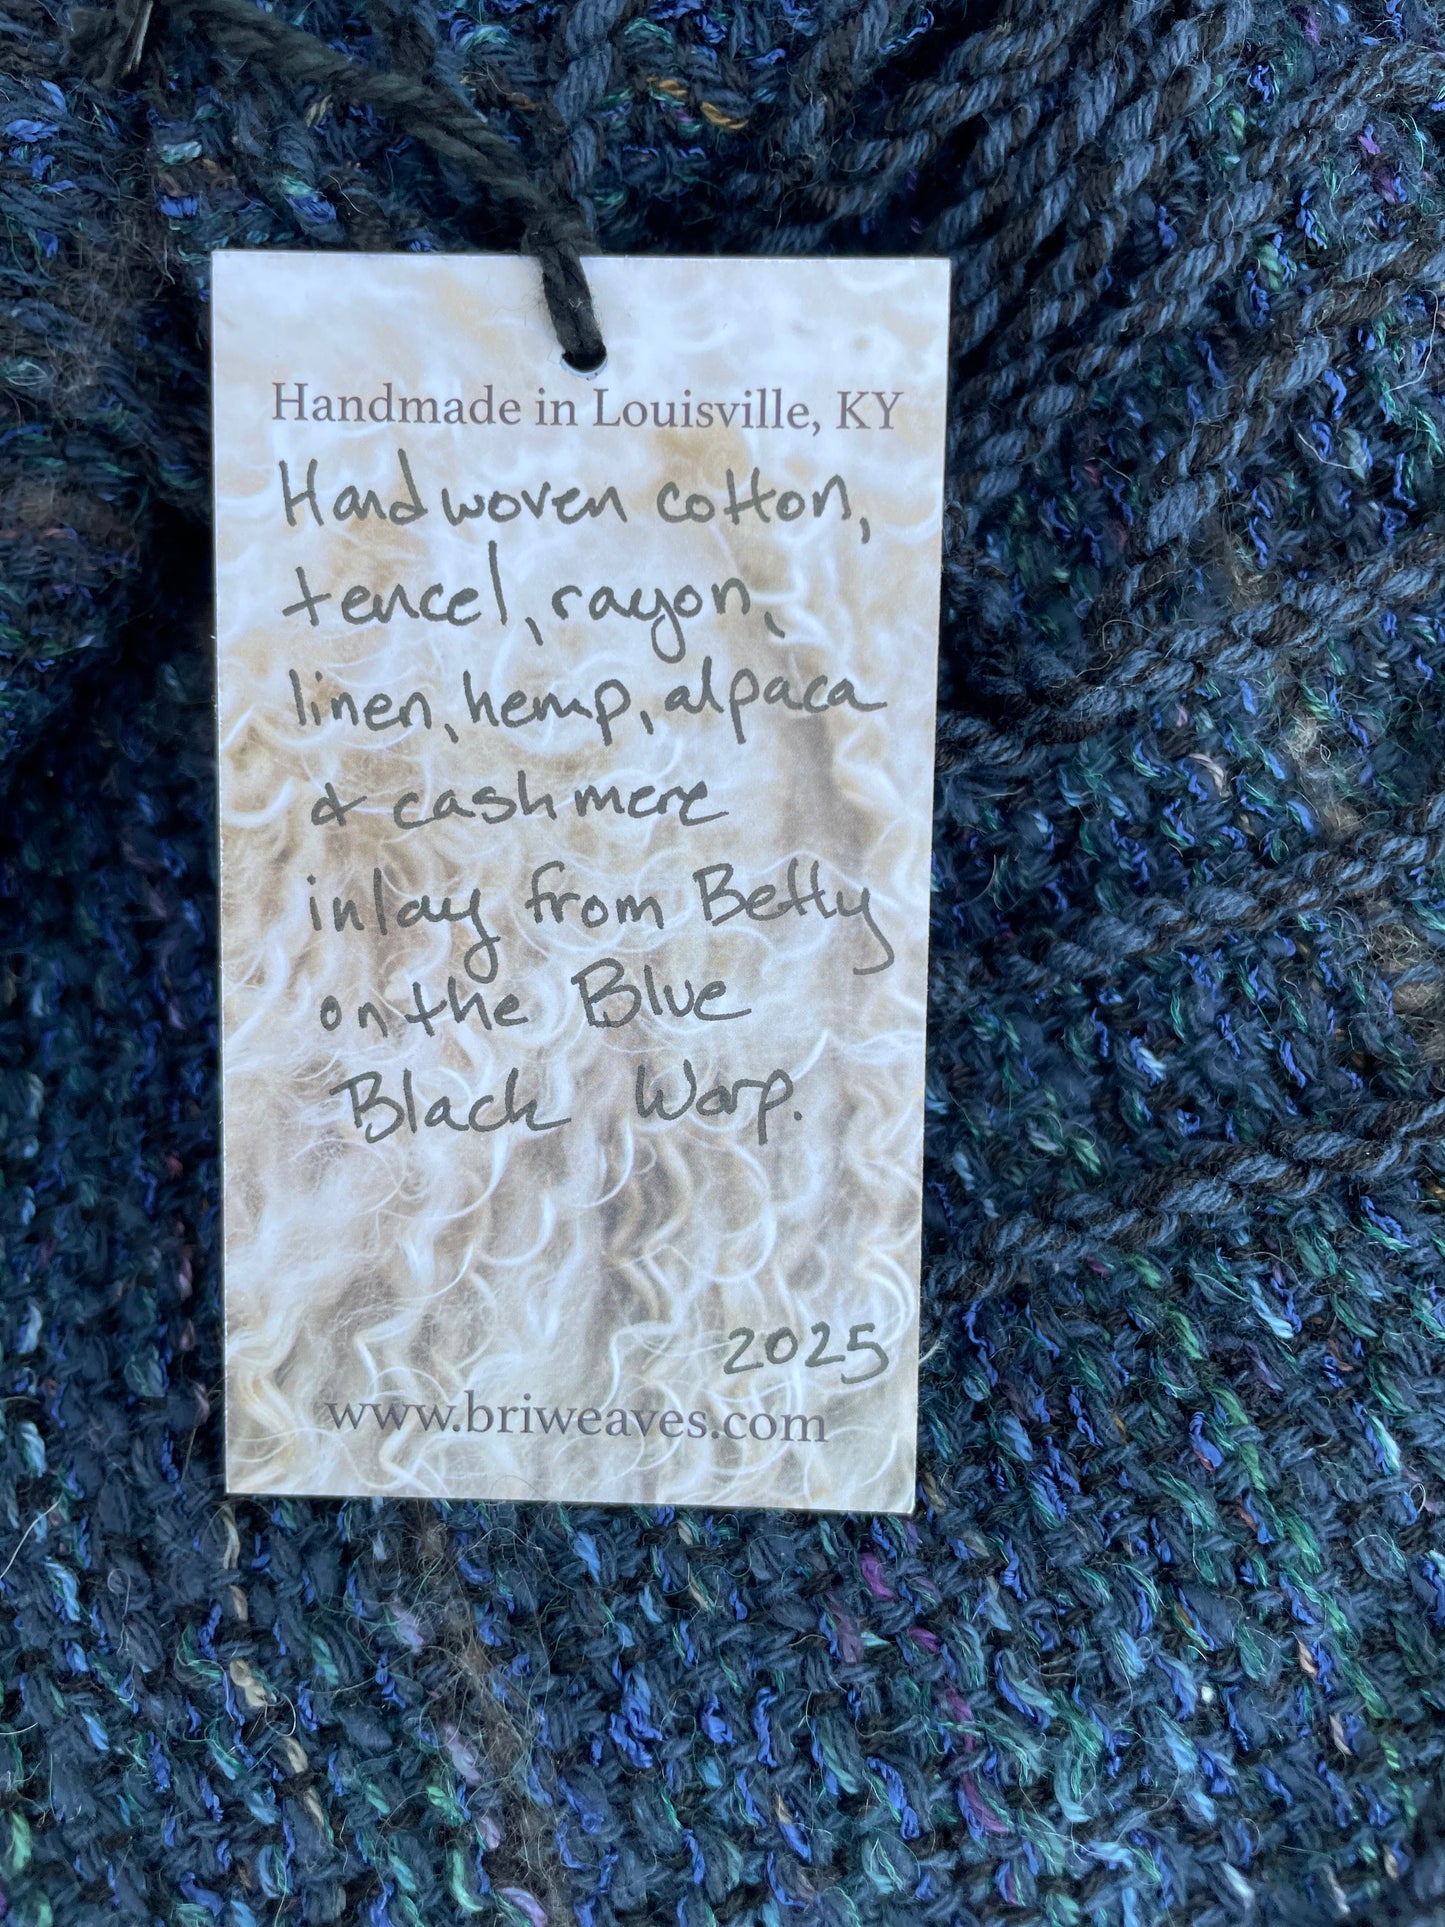 Handmade in Louisville, KY
Handwoven cotton,
tencel, rayon,
linen, hemp, alpaca
& cashmere
inlay from Betty
on the Blue
Black Warp.
2025
www.briweaves.com